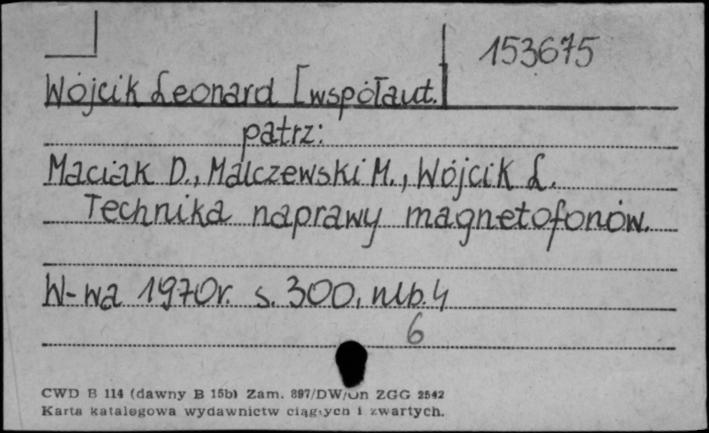 153675
Wójcik Leonard [współaut.]
patrz:
Maciak D., Malczewski M., Wójcik L.
Technika naprawy magnetofonów.
W-wa 1970r. s. 300, nlb. 4
6
CWD B 114 (dawny B 15b) Zam. 897/DW/On ZGG 2542
Karta katalogowa wydawnictw ciągłych i zwartych.